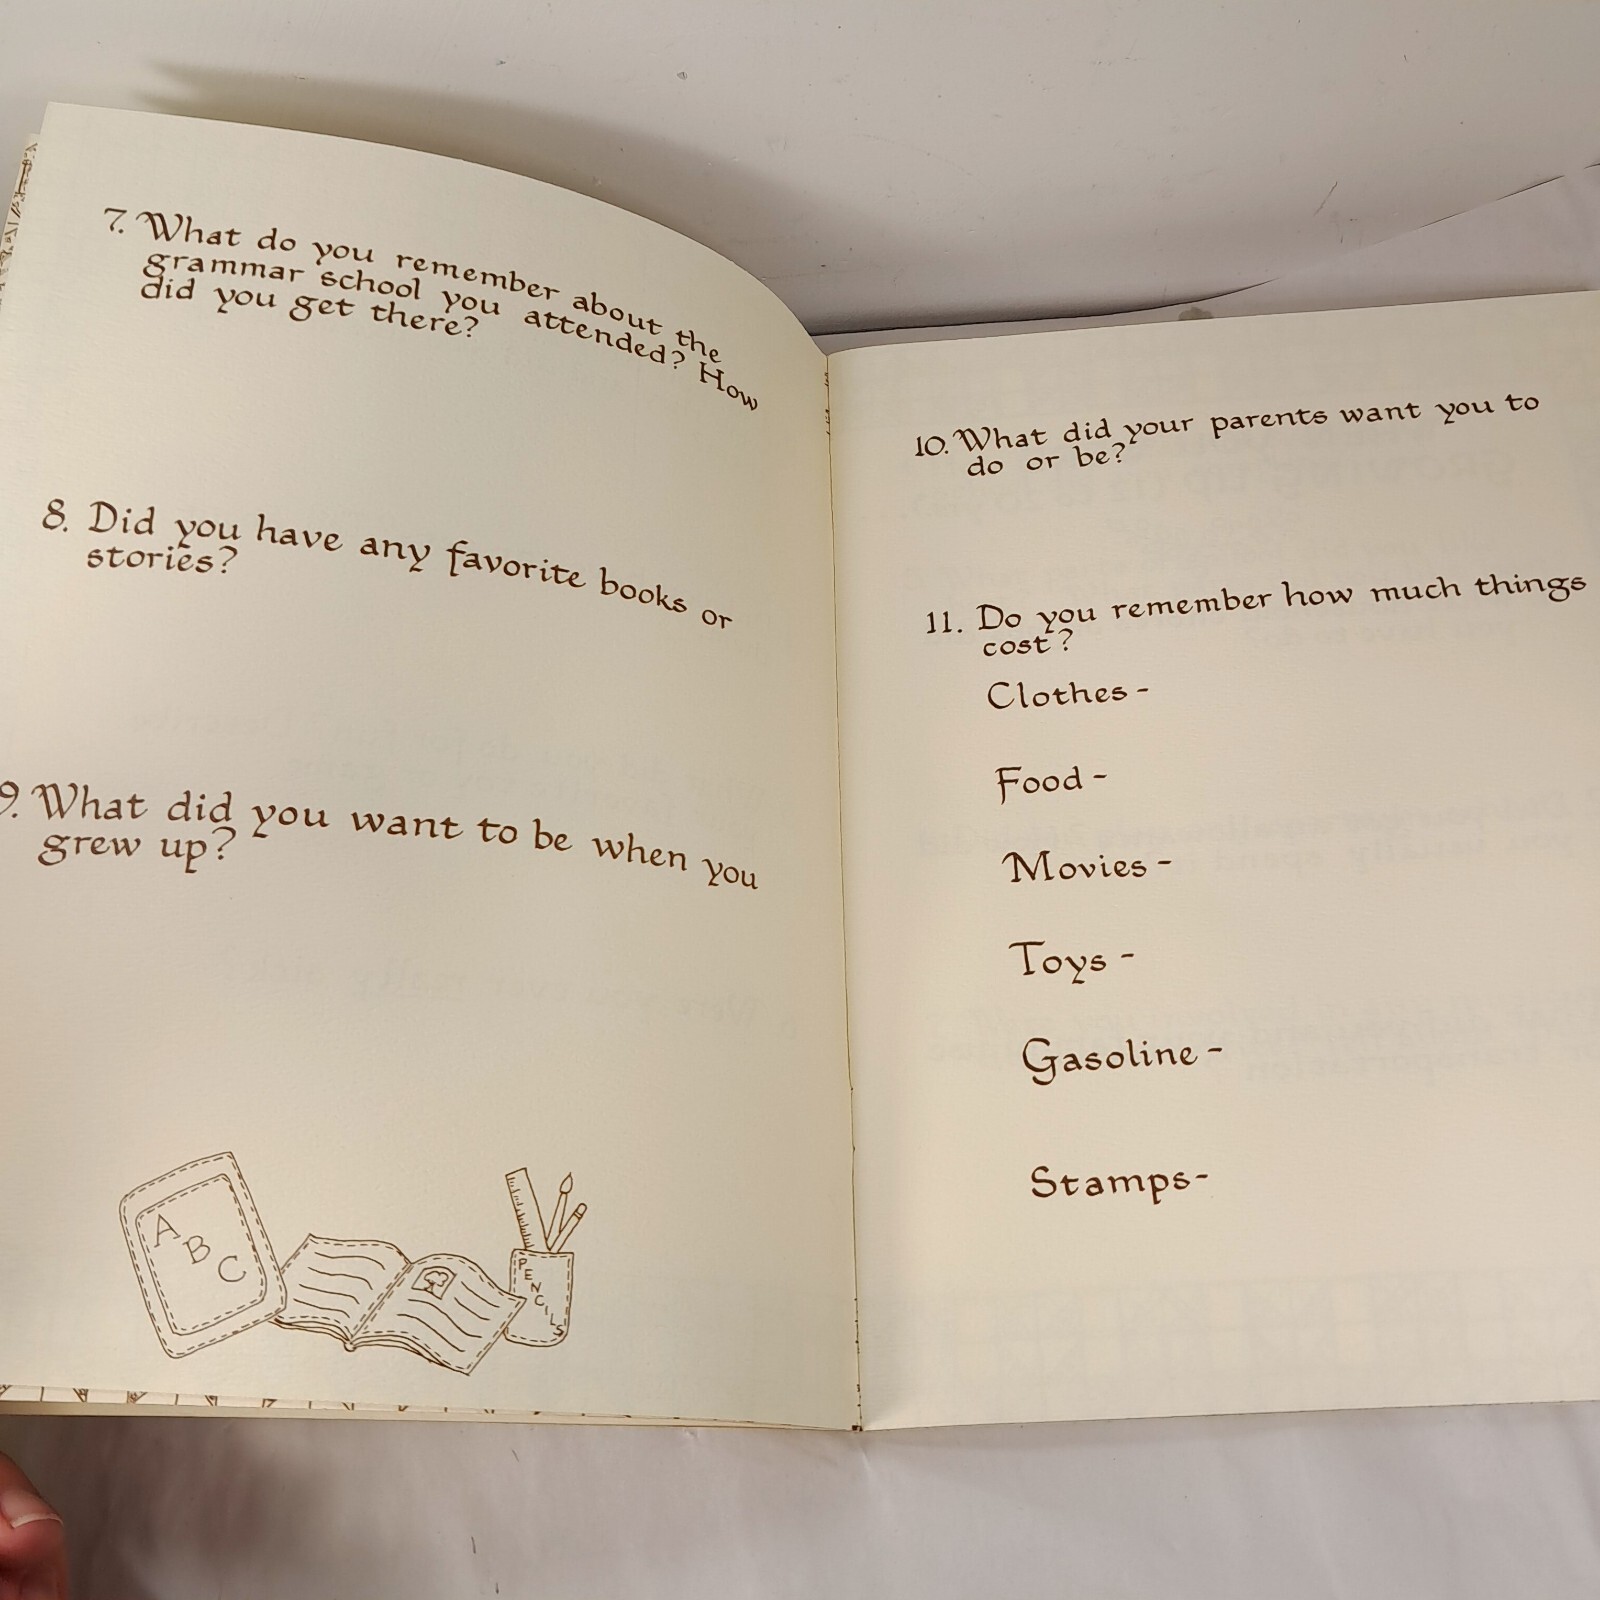 7. What do you remember about the
grammar school you attended? How
did you get there?
8. Did you have any favorite books or
stories?
9. What did you want to be when you
grew up?
A
B
C
PENCILS
10. What did your parents want you to
do or be?
11. Do you remember how much things
cost?
Clothes -
Food -
Movies -
Toys -
Gasoline -
Stamps-